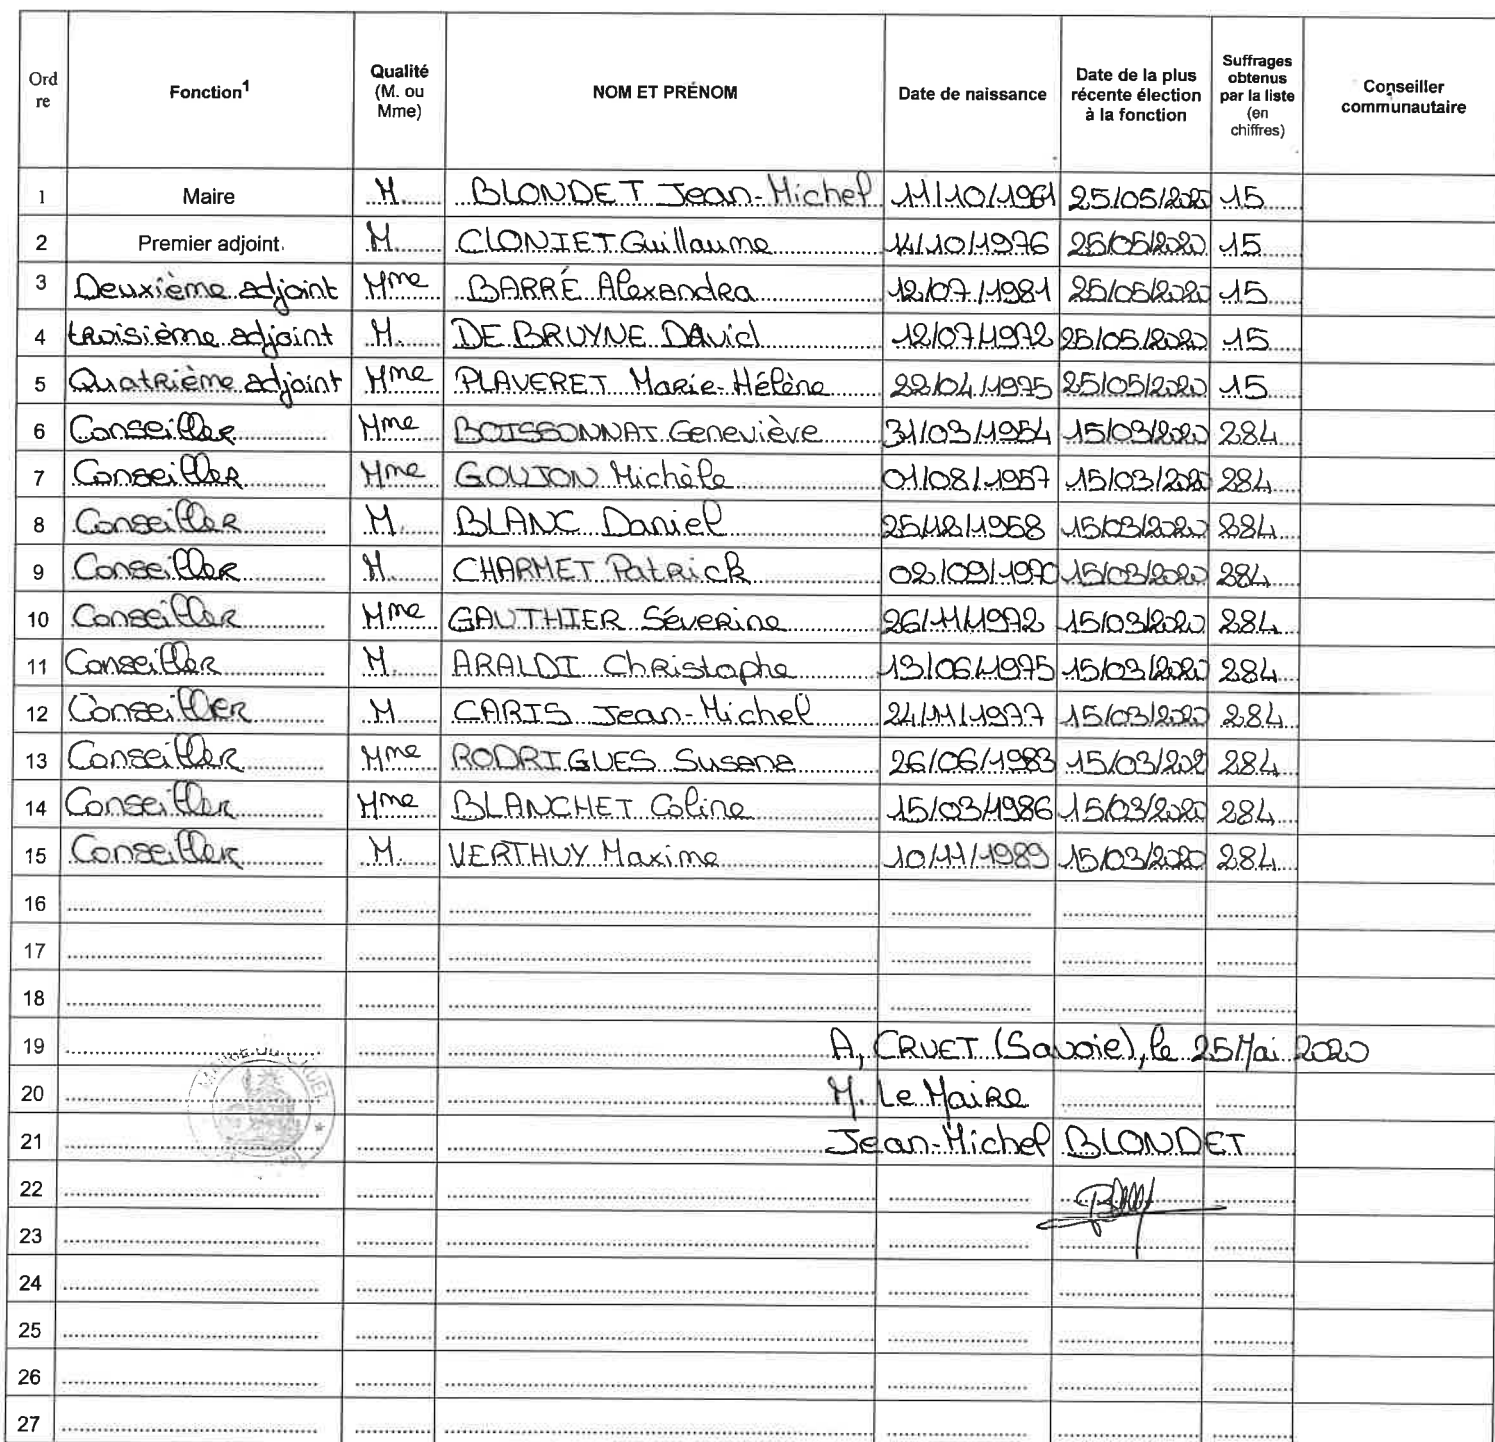 Ord re | Fonction1 | Qualité (M. ou Mme) | NOM ET PRÉNOM | Date de naissance | Date de la plus récente élection à la fonction | Suffrages obtenus par la liste (en chiffres) | Conseiller communautaire
1 | Maire | M. | BLONDET Jean-Michel | 11/10/1961 | 25/05/2020 | 15
2 | Premier adjoint | M. | CLONIET Guillaume | 14/10/1976 | 25/05/2020 | 15
3 | Deuxième adjoint | Mme | BARRÉ Alexandra | 12/07/1981 | 25/05/2020 | 15
4 | troisième adjoint | M. | DE BRUYNE David | 12/07/1972 | 25/05/2020 | 15
5 | Quatrième adjoint | Mme | PLAVERET Marie-Hélène | 22/04/1975 | 25/05/2020 | 15
6 | Conseiller | Mme | BOISSONNAT Geneviève | 31/03/1954 | 15/03/2020 | 284
7 | Conseiller | Mme | GOUJON Michèle | 01/08/1957 | 15/03/2020 | 284
8 | Conseiller | M. | BLANC Daniel | 25/12/1958 | 15/03/2020 | 284
9 | Conseiller | M. | CHARMET Patrick | 02/09/1970 | 15/03/2020 | 284
10 | Conseiller | Mme | GAUTHIER Séverine | 26/11/1972 | 15/03/2020 | 284
11 | Conseiller | M. | ARALDI Christophe | 13/06/1975 | 15/03/2020 | 284
12 | Conseiller | M | CARIS Jean-Michel | 24/11/1977 | 15/03/2020 | 284
13 | Conseiller | Mme | RODRIGUES Susana | 26/06/1983 | 15/03/2020 | 284
14 | Conseiller | Mme | BLANCHET Coline | 15/03/1986 | 15/03/2020 | 284
15 | Conseiller | M. | VERTHUY Maxime | 10/11/1989 | 15/03/2020 | 284
16
17
18
19 | A, CRUET (Savoie), le 25 Mai 2020
MAIRIE DU CRUET
20 | M. Le Maire
21 | Jean-Michel BLONDET
22
23
24
25
26
27